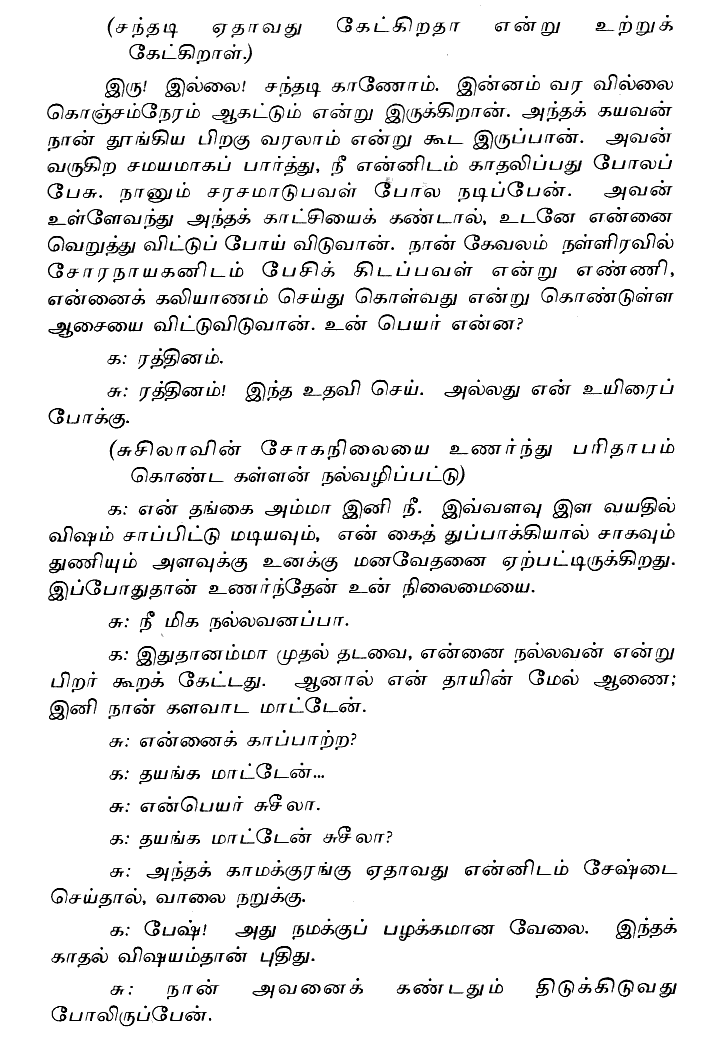 (சந்தடி ஏதாவது கேட்கிறதா என்று உற்றுக்
கேட்கிறாள்.)
இரு! இல்லை! சந்தடி காணோம். இன்னம் வர வில்லை
கொஞ்சம்நேரம் ஆகட்டும் என்று இருக்கிறான். அந்தக் கயவன்
நான் தூங்கிய பிறகு வரலாம் என்று கூட இருப்பான். அவன்
வருகிற சமயமாகப் பார்த்து, நீ என்னிடம் காதலிப்பது போலப்
பேசு. நானும் சரசமாடுபவள் போல நடிப்பேன். அவன்
உள்ளேவந்து அந்தக் காட்சியைக் கண்டால், உடனே என்னை
வெறுத்து விட்டுப் போய் விடுவான். நான் கேவலம் நள்ளிரவில்
சோரநாயகனிடம் பேசிக் கிடப்பவள் என்று எண்ணி,
என்னைக் கலியாணம் செய்து கொள்வது என்று கொண்டுள்ள
ஆசையை விட்டுவிடுவான். உன் பெயர் என்ன?
க: ரத்தினம்.
சு: ரத்தினம்! இந்த உதவி செய். அல்லது என் உயிரைப்
போக்கு.
(சுசிலாவின் சோகநிலையை உணர்ந்து பரிதாபம்
கொண்ட கள்ளன் நல்வழிப்பட்டு)
க: என் தங்கை அம்மா இனி நீ. இவ்வளவு இள வயதில்
விஷம் சாப்பிட்டு மடியவும், என் கைத் துப்பாக்கியால் சாகவும்
துணியும் அளவுக்கு உனக்கு மனவேதனை ஏற்பட்டிருக்கிறது.
இப்போதுதான் உணர்ந்தேன் உன் நிலைமையை.
சு: நீ மிக நல்லவனப்பா.
க: இதுதானம்மா முதல் தடவை, என்னை நல்லவன் என்று
பிறர் கூறக் கேட்டது. ஆனால் என் தாயின் மேல் ஆணை;
இனி நான் களவாட மாட்டேன்.
சு: என்னைக் காப்பாற்ற?
க: தயங்க மாட்டேன்...
சு: என்பெயர் சுசீலா.
க: தயங்க மாட்டேன் சுசீலா?
சு: அந்தக் காமக்குரங்கு ஏதாவது என்னிடம் சேஷ்டை
செய்தால், வாலை நறுக்கு.
க: பேஷ்! அது நமக்குப் பழக்கமான வேலை. இந்தக்
காதல் விஷயம்தான் புதிது.
சு: நான் அவனைக் கண்டதும் திடுக்கிடுவது
போலிருப்பேன்.